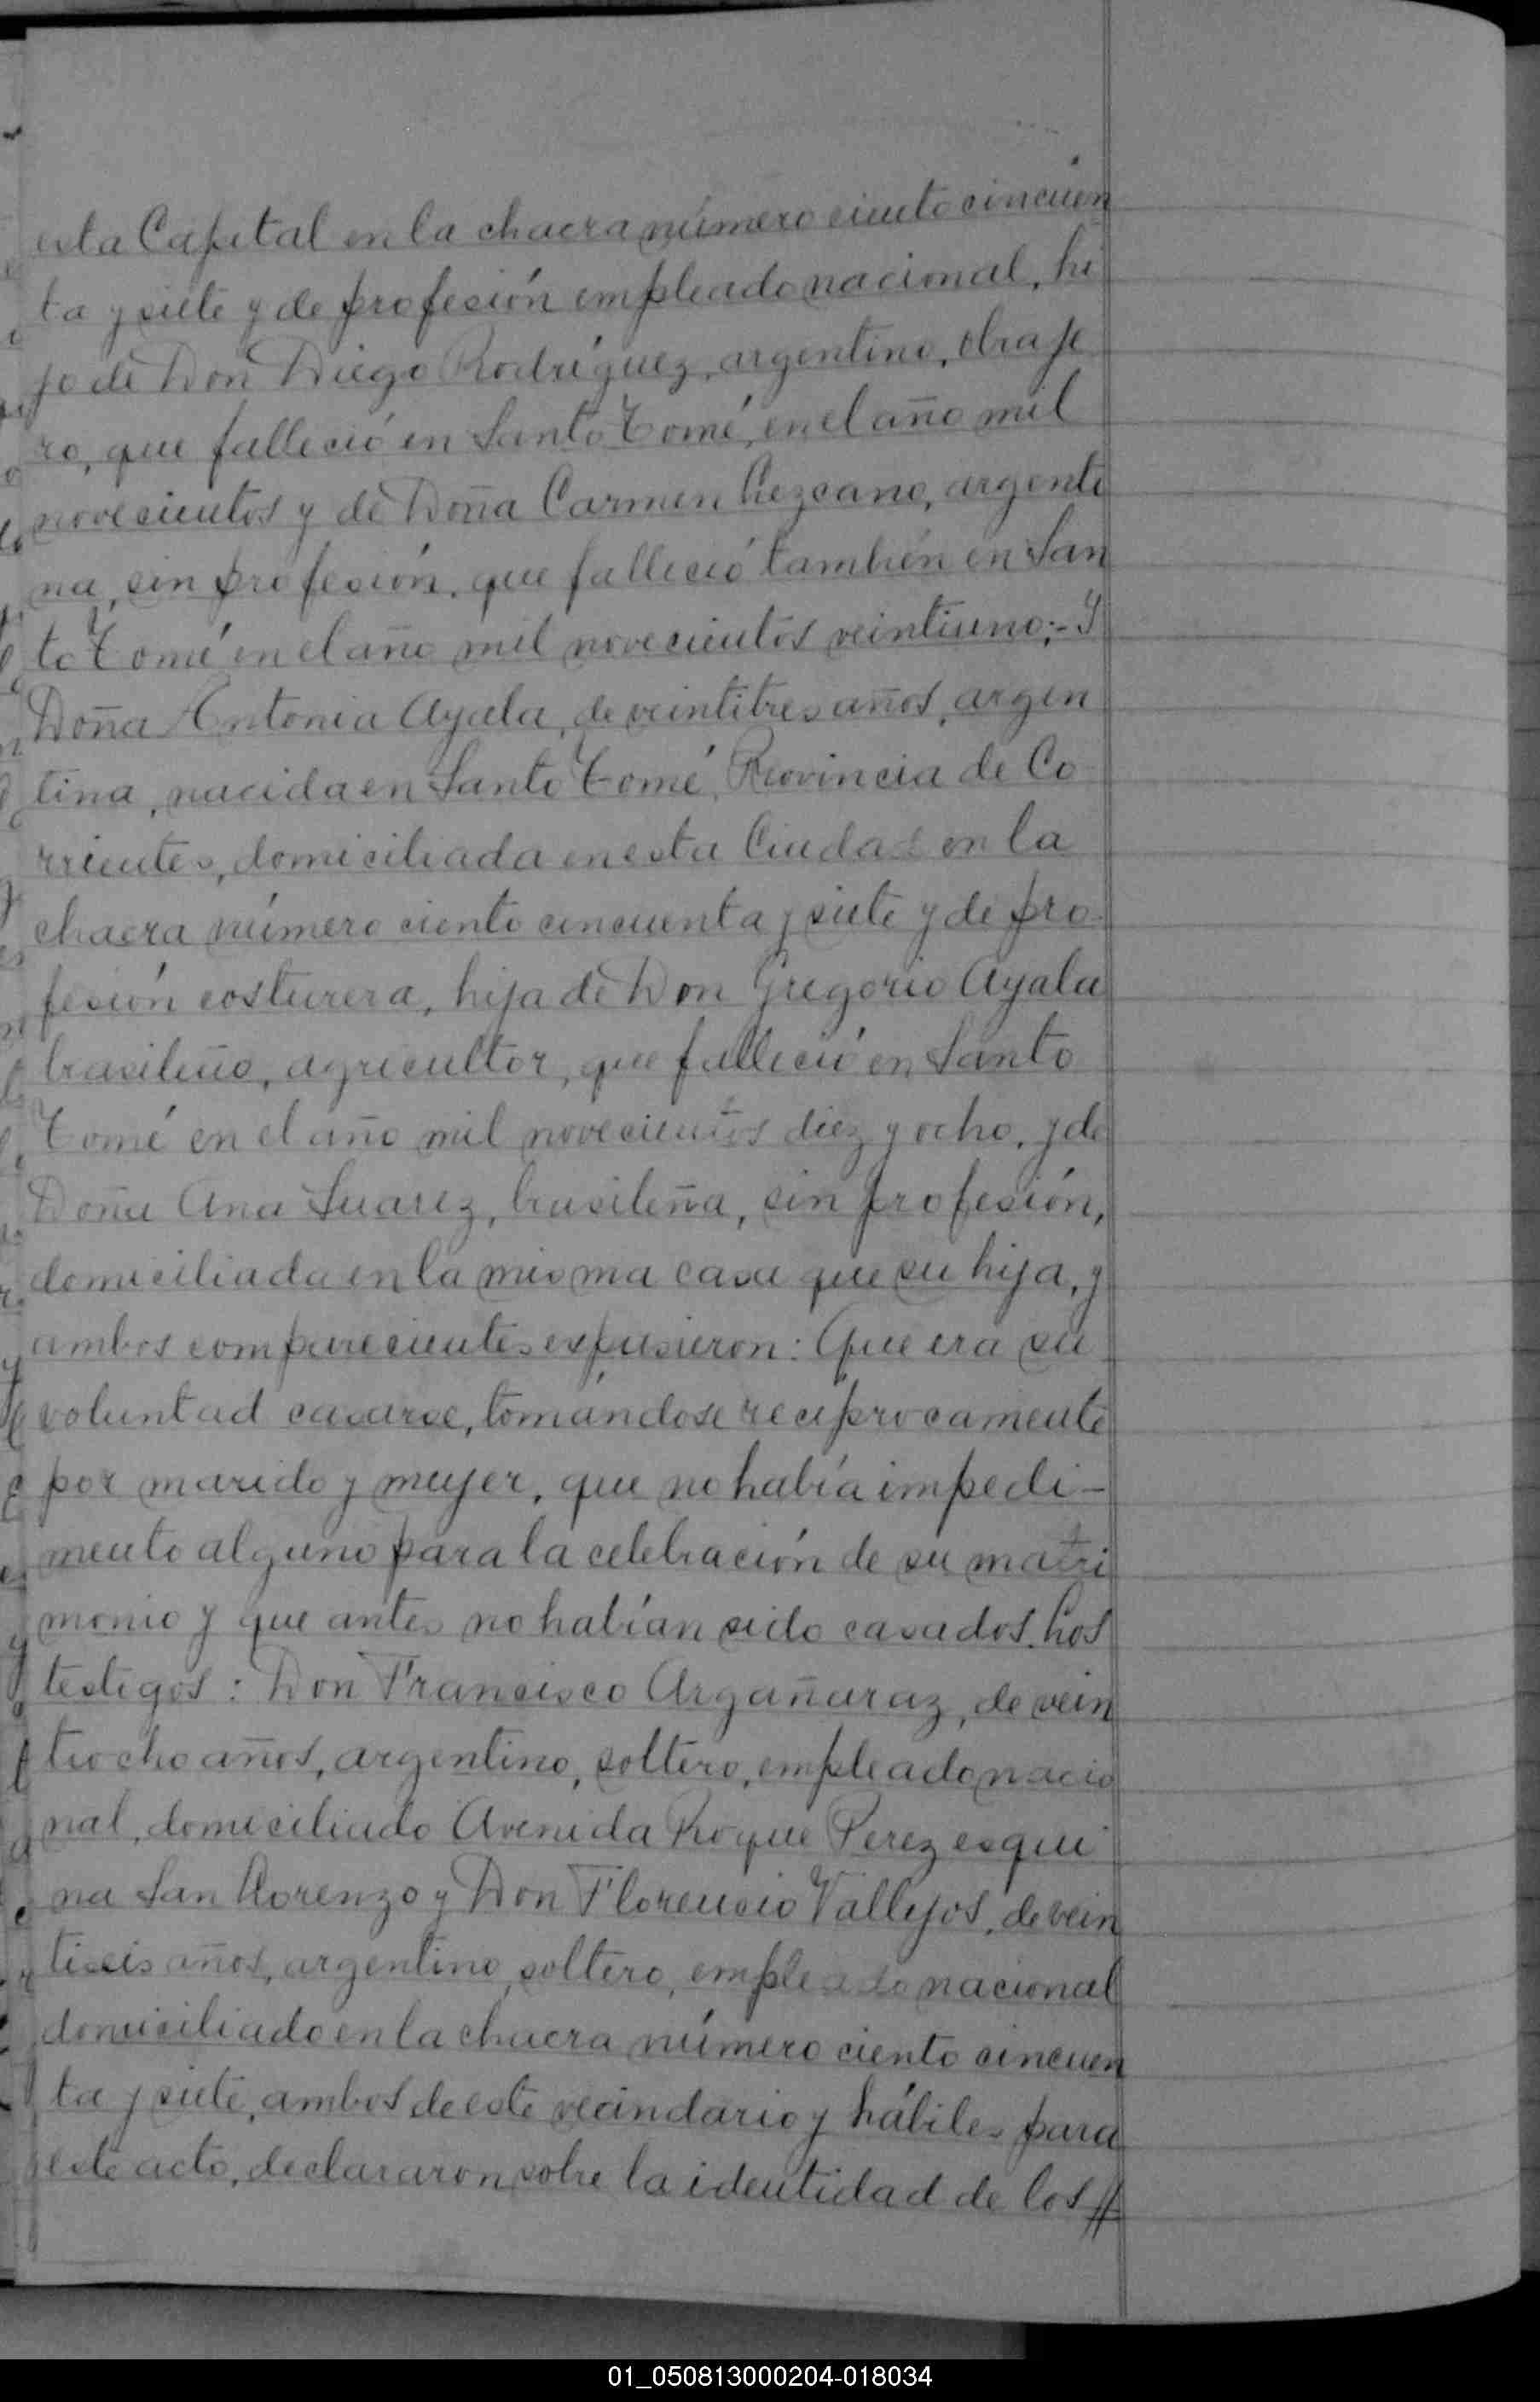 esta Capital en la chacra número ciento cincuen
ta y siete y de profesión empleado nacional, hi
jo de Don Diego Rodríguez, argentino, obraje
ro, que falleció en Santo Tomé, en el año mil
novecientos y de Doña Carmen Lezcano, argenti
na, sin profesión, que falleció también en San
to Tomé en el año mil novecientos veintiuno;- Y
Doña Antonia Ayala, de veintitres años, argen
tina, nacida en Santo Tomé, Provincia de Co
rrientes, domiciliada en esta Ciudad en la
chacra número ciento cincuenta y siete y de pro-
fesión costurera, hija de Don Gregorio Ayala
brasileño, agricultor, que falleció en Santo
Tomé en el año mil novecientos diez y ocho, y de
Doña Ana Suarez, brasileña, sin profesión,
domiciliada en la misma casa que su hija, y
ambos comparecientes expusieron: Que era su
voluntad casarse, tomándose recíprocamente
por marido y mujer, que no había impedi-
mento alguno para la celebración de su matri
monio y que antes no habían sido casados. Los
testigos: Don Francisco Argañaraz, de vein
tiocho años, argentino, soltero, empleado nacio
nal, domiciliado Avenida Roque Perez esqui
na San Lorenzo y Don Florencio Vallejos, de vein
tiseis años, argentino, soltero, empleado nacional
domiciliado en la chacra número ciento cincuen
ta y siete, ambos de este vecindario y hábiles para
este acto, declararon sobre la identidad de los//
01_050813000204-018034